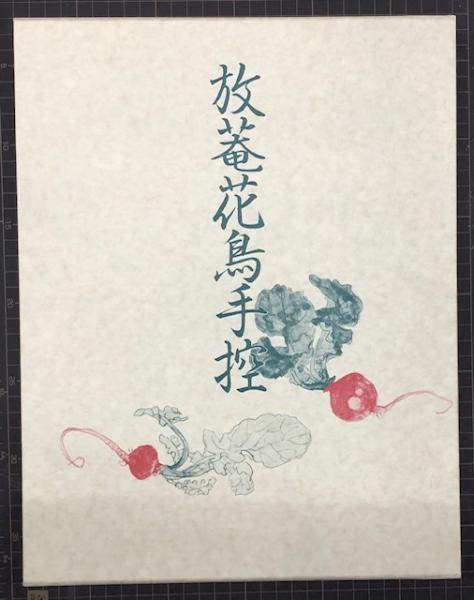 放菴花鳥手控